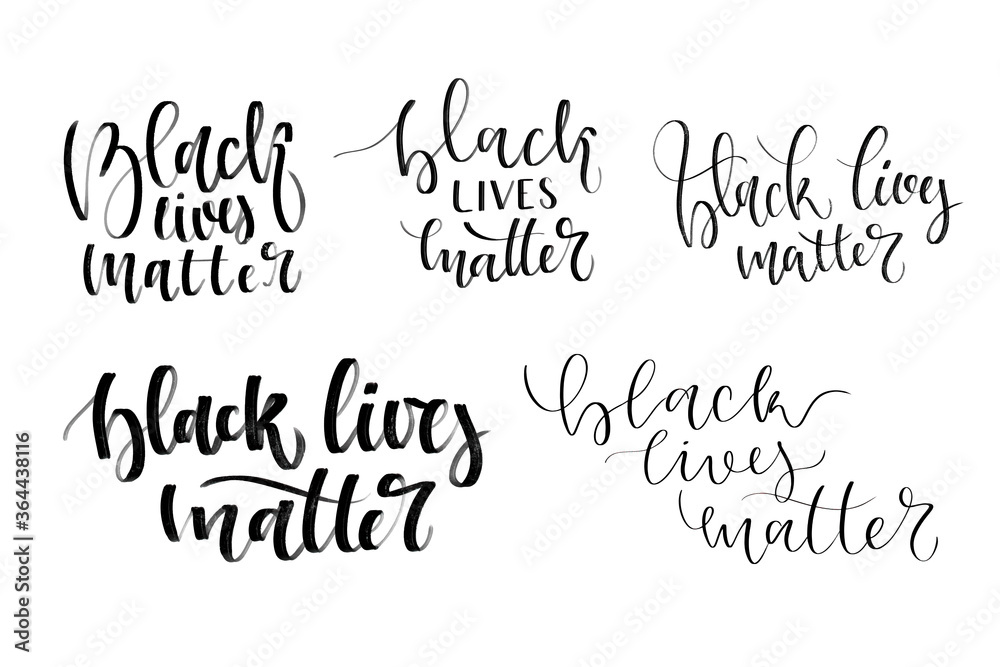 Black
lives
matter
black
LIVES
matter
black lives
matter
black lives
matter
black
lives
matter
Adobe Stock | #364438116